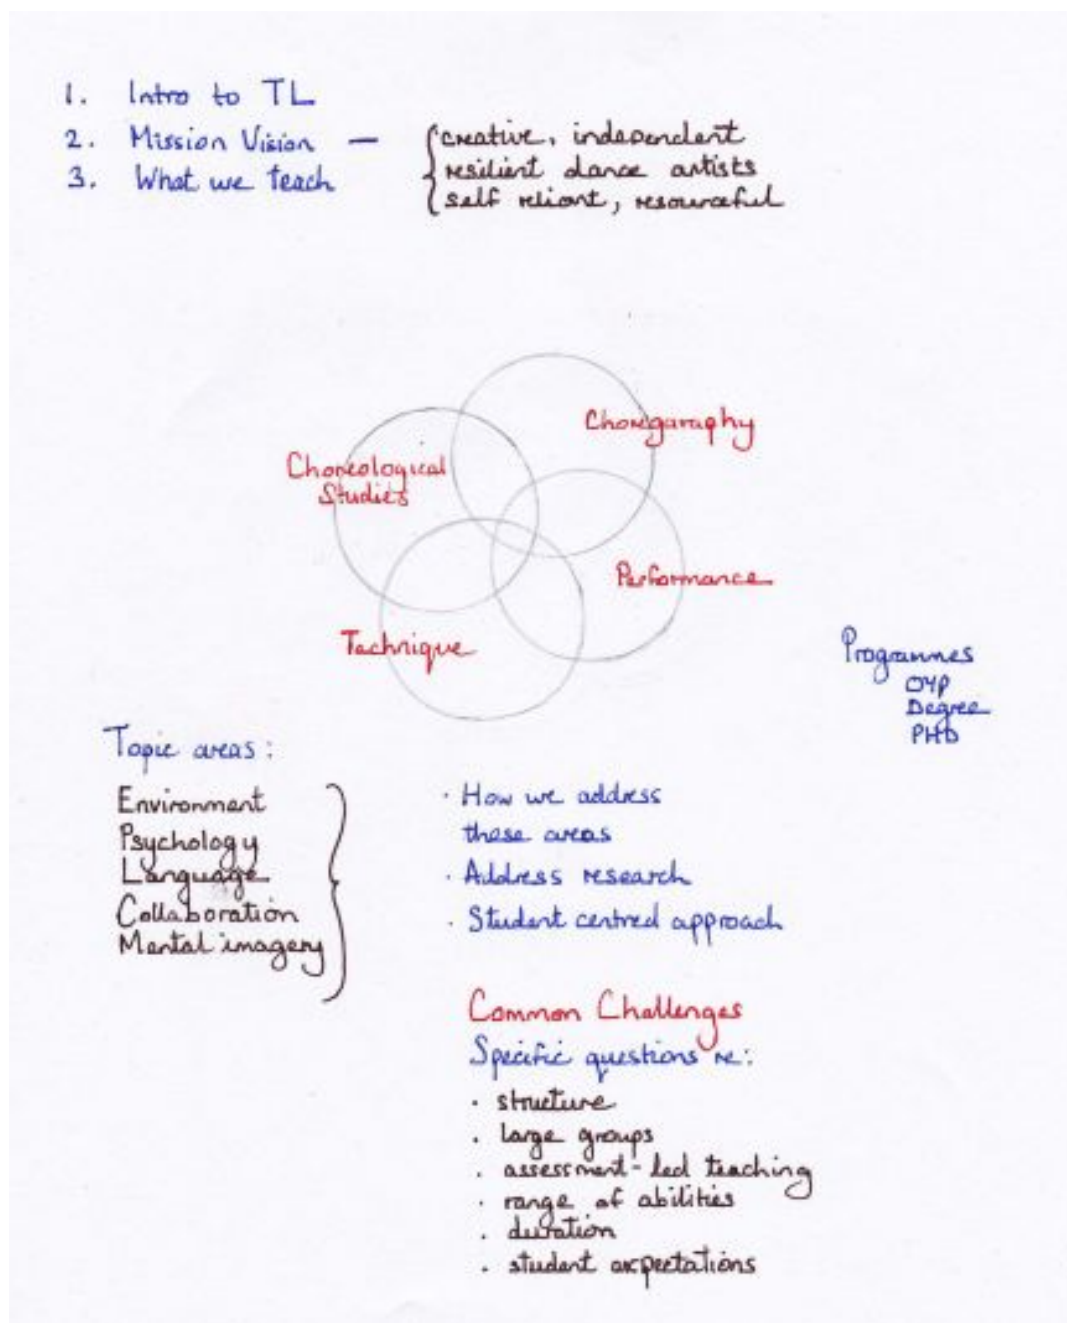 1. Intro to TL
2. Mission Vision — creative, independent
resilient dance artists
3. What we teach
self reliant, resourceful
Choregaraphy
Choreological
Studies
Performance
Technique
Programmes
OYP
Degree
PHD
Topic areas:
Environment
Psychology
Language
Collaboration
Mental imagery
· How we address
these areas
· Address research
· Student centred approach
Common Challenges
Specific questions re:
· structure
· large groups
· assessment-led teaching
· range of abilities
· duration
· student expectations